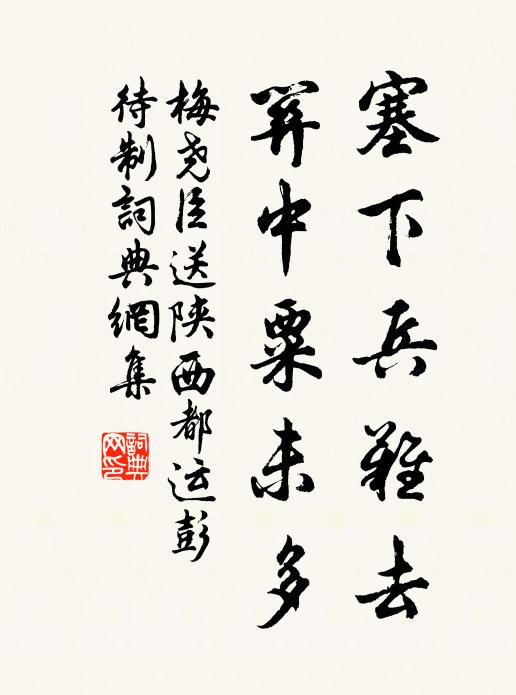 塞下兵難去
筭中粟未多
梅尧臣送陕西都运彭
待制詞典網集
詞典网印